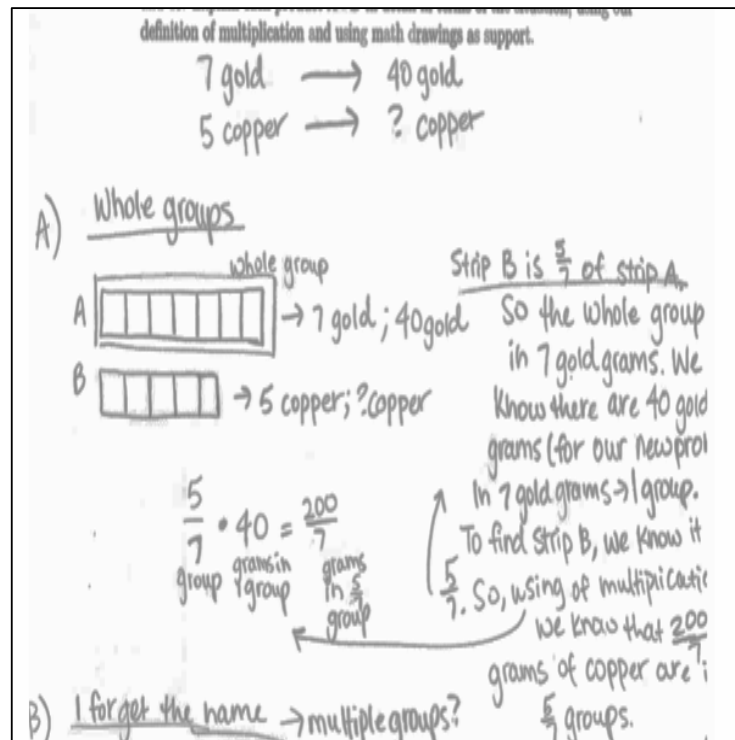 definition of multiplication and using math drawings as support.
7 gold → 40 gold
5 copper → ? copper
A) Whole groups
whole group
A → 7 gold ; 40 gold
B → 5 copper; ? copper
5/7 • 40 = 200/7
group grams in 1 group grams in 5/7 group
Strip B is 5/7 of strip A.
So the whole group
in 7 gold grams. We
know there are 40 gold
grams (for our new
in 7 gold grams → 1 group.
To find strip B, we know it
5/7. So, using of
we know that 200/7
grams of copper are
5/7 groups.
B) I forget the name → multiple groups?